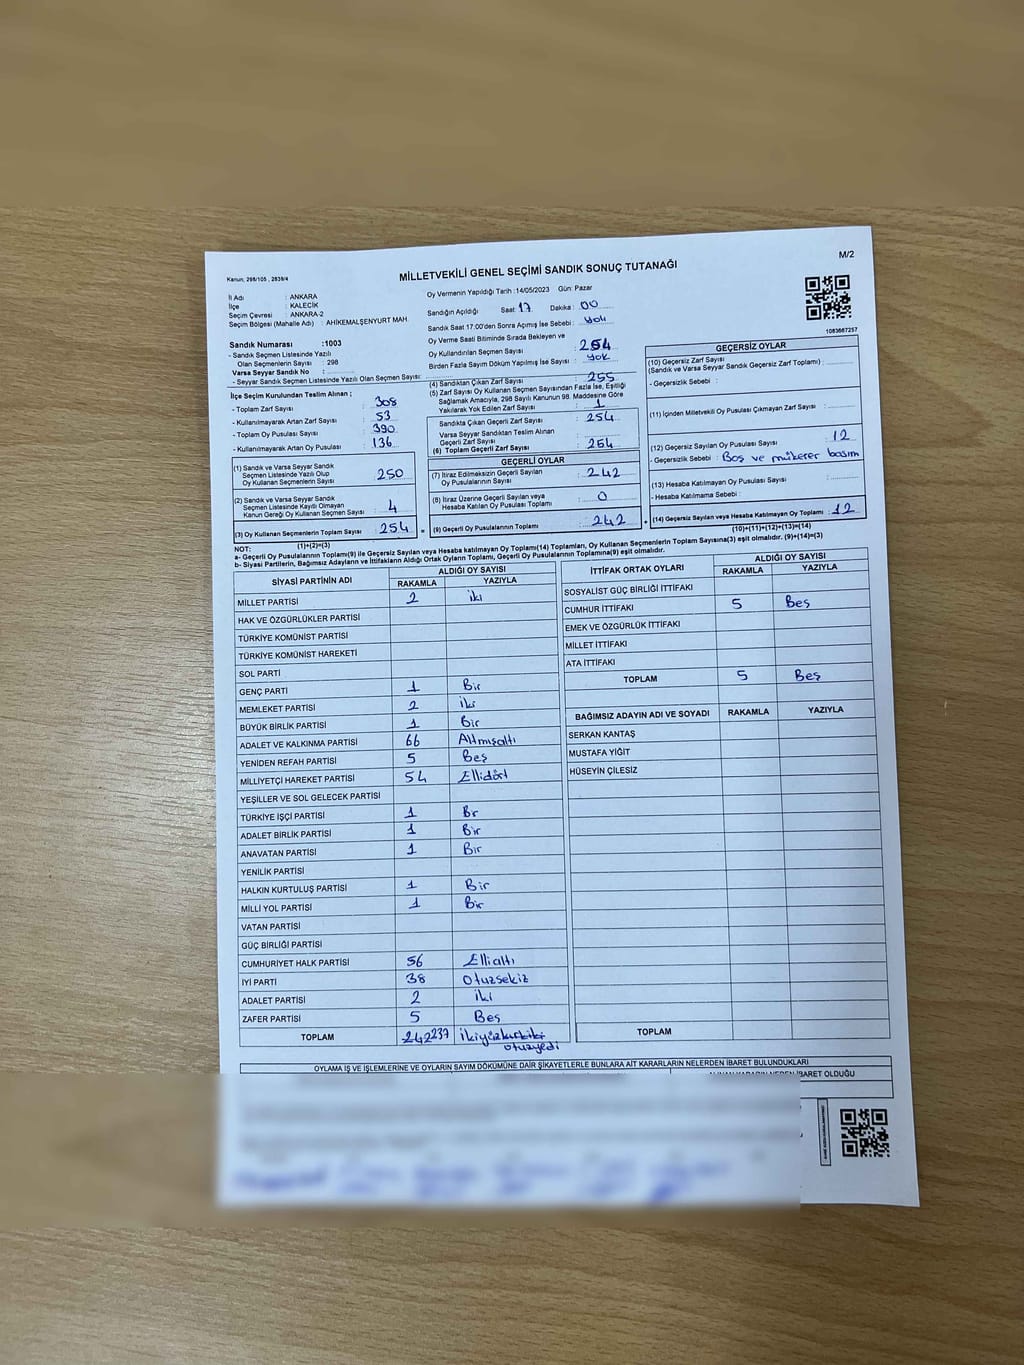 M/2
Kanun: 298/105 , 2839/4
MİLLETVEKİLİ GENEL SEÇİMİ SANDIK SONUÇ TUTANAĞI
İl Adı : ANKARA
İlçe : KALECİK
Seçim Çevresi : ANKARA-2
Seçim Bölgesi (Mahalle Adı) : AHİKEMALŞENYURT MAH.
Oy Vermenin Yapıldığı Tarih :14/05/2023 Gün: Pazar
Sandığın Açıldığı Saat: 17 Dakika : 00
Sandık Saat 17:00'den Sonra Açmış İse Sebebi : yok
Oy Verme Saati Bitiminde Sırada Bekleyen ve
Oy Kullandırılan Seçmen Sayısı : 254
Birden Fazla Sayım Döküm Yapılmış İse Sayısı : yok
1083667257
Sandık Numarası :1003
- Sandık Seçmen Listesinde Yazılı
Olan Seçmenlerin Sayısı : 298
Varsa Seyyar Sandık No :
- Seyyar Sandık Seçmen Listesinde Yazılı Olan Seçmen Sayısı:
İlçe Seçim Kurulundan Teslim Alınan ;
- Toplam Zarf Sayısı : 308
- Kullanılmayarak Artan Zarf Sayısı : 53
- Toplam Oy Pusulası Sayısı : 390
- Kullanılmayarak Artan Oy Pusulası : 136
(1) Sandık ve Varsa Seyyar Sandık
Seçmen Listesinde Yazılı Olup
Oy Kullanan Seçmenlerin Sayısı : 250
(2) Sandık ve Varsa Seyyar Sandık
Seçmen Listesinde Kayıtlı Olmayan
Kanun Gereği Oy Kullanan Seçmen Sayısı : 4
(3) Oy Kullanan Seçmenlerin Toplam Sayısı : 254
(1)+(2)=(3)
(4) Sandıktan Çıkan Zarf Sayısı : 255
(5) Zarf Sayısı Oy Kullanan Seçmen Sayısından Fazla İse, Eşitliği
Sağlamak Amacıyla, 298 Sayılı Kanunun 98. Maddesine Göre
Yakılarak Yok Edilen Zarf Sayısı : 1
Sandıkta Çıkan Geçerli Zarf Sayısı : 254
Varsa Seyyar Sandıktan Teslim Alınan
Geçerli Zarf Sayısı :
(6) Toplam Geçerli Zarf Sayısı : 254
GEÇERLİ OYLAR
(7) İtiraz Edilmeksizin Geçerli Sayılan
Oy Pusulasının Sayısı : 242
(8) İtiraz Üzerine Geçerli Sayılan veya
Hesaba Katılan Oy Pusulası Toplamı : 0
(9) Geçerli Oy Pusulalarının Toplamı : 242
GEÇERSİZ OYLAR
(10) Geçersiz Zarf Sayısı
(Sandık ve Varsa Seyyar Sandık Geçersiz Zarf Toplamı) :
- Geçersizlik Sebebi :
(11) İçinden Milletvekili Oy Pusulası Çıkmayan Zarf Sayısı :
(12) Geçersiz Sayılan Oy Pusulası Sayısı : 12
- Geçersizlik Sebebi : Boş ve mükerer basım
(13) Hesaba Katılmayan Oy Pusulası Sayısı :
- Hesaba Katılmama Sebebi :
(14) Geçersiz Sayılan veya Hesaba Katılmayan Oy Toplamı : 12
(10)+(11)+(12)+(13)=(14)
NOT:
a- Geçerli Oy Pusulalarının Toplamı(9) ile Geçersiz Sayılan veya Hesaba katılmayan Oy Toplamı(14) Toplamları, Oy Kullanan Seçmenlerin Toplam Sayısına(3) eşit olmalıdır. (9)+(14)=(3)
b- Siyasi Partilerin, Bağımsız Adayların ve İttifakların Aldığı Ortak Oyların Toplamı, Geçerli Oy Pusulalarının Toplamına(9) eşit olmalıdır.
SİYASİ PARTİNİN ADI ALDIĞI OY SAYISI
RAKAMLA YAZIYLA
MİLLET PARTİSİ 2 iki
HAK VE ÖZGÜRLÜKLER PARTİSİ
TÜRKİYE KOMÜNİST PARTİSİ
TÜRKİYE KOMÜNİST HAREKETİ
SOL PARTİ
GENÇ PARTİ 1 Bir
MEMLEKET PARTİSİ 2 iki
BÜYÜK BİRLİK PARTİSİ 1 Bir
ADALET VE KALKINMA PARTİSİ 66 Altmışaltı
YENİDEN REFAH PARTİSİ 5 Beş
MİLLİYETÇİ HAREKET PARTİSİ 54 Ellidört
YEŞİLLER VE SOL GELECEK PARTİSİ
TÜRKİYE İŞÇİ PARTİSİ 1 Br
ADALET BİRLİK PARTİSİ 1 Bir
ANAVATAN PARTİSİ 1 Bir
YENİLİK PARTİSİ
HALKIN KURTULUŞ PARTİSİ 1 Bir
MİLLİ YOL PARTİSİ 1 Bir
VATAN PARTİSİ
GÜÇ BİRLİĞİ PARTİSİ
CUMHURİYET HALK PARTİSİ 56 Ellialtı
İYİ PARTİ 38 otuzsekiz
ADALET PARTİSİ 2 iki
ZAFER PARTİSİ 5 Beş
TOPLAM 242 237 ikiyüzkırkiki
otuzyedi
İTTİFAK ORTAK OYLARI ALDIĞI OY SAYISI
RAKAMLA YAZIYLA
SOSYALİST GÜÇ BİRLİĞİ İTTİFAKI
CUMHUR İTTİFAKI 5 Beş
EMEK VE ÖZGÜRLÜK İTTİFAKI
MİLLET İTTİFAKI
ATA İTTİFAKI
TOPLAM 5 Beş
BAĞIMSIZ ADAYIN ADI VE SOYADI RAKAMLA YAZIYLA
SERKAN KANTAŞ
MUSTAFA YİĞİT
HÜSEYİN ÇİLESİZ
TOPLAM
OYLAMA İŞ VE İŞLEMLERİNE VE OYLARIN SAYIM DÖKÜMÜNE DAİR ŞİKAYETLERLE BUNLARA AİT KARARLARIN NELERDEN İBARET BULUNDUKLARI
ALINAN KARARIN NEDEN İBARET OLDUĞU